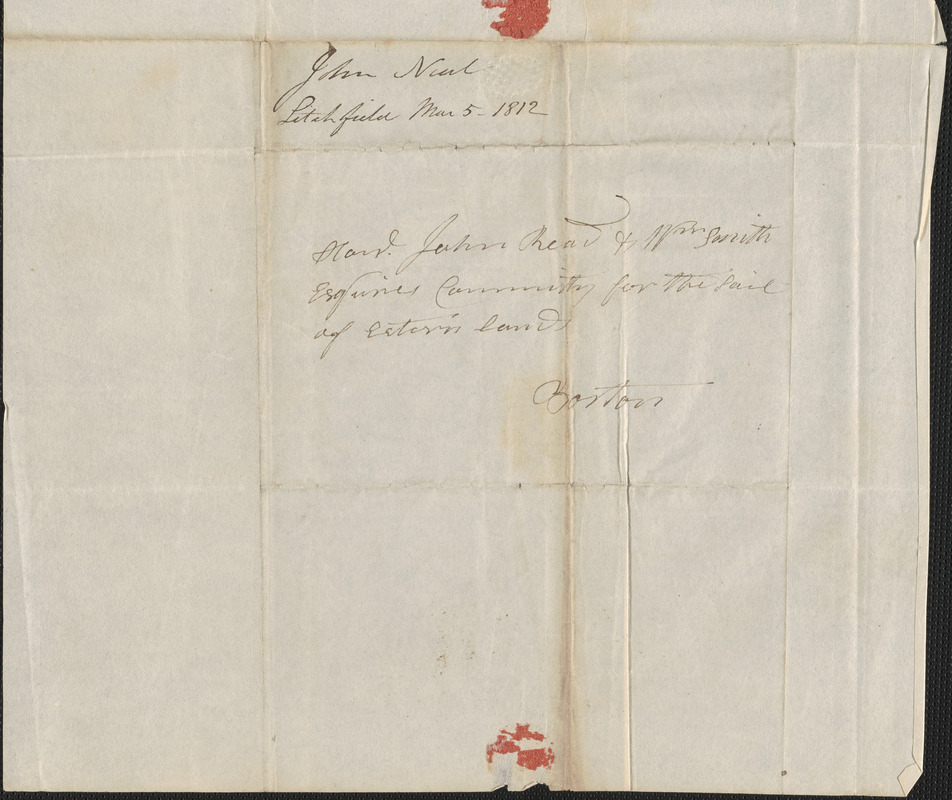 John Neal
Litchfield Mar 5 - 1812
Hon'd. John Read & Wm Smith
Esquires Committy for the Sail
of Estern Lands
Boston